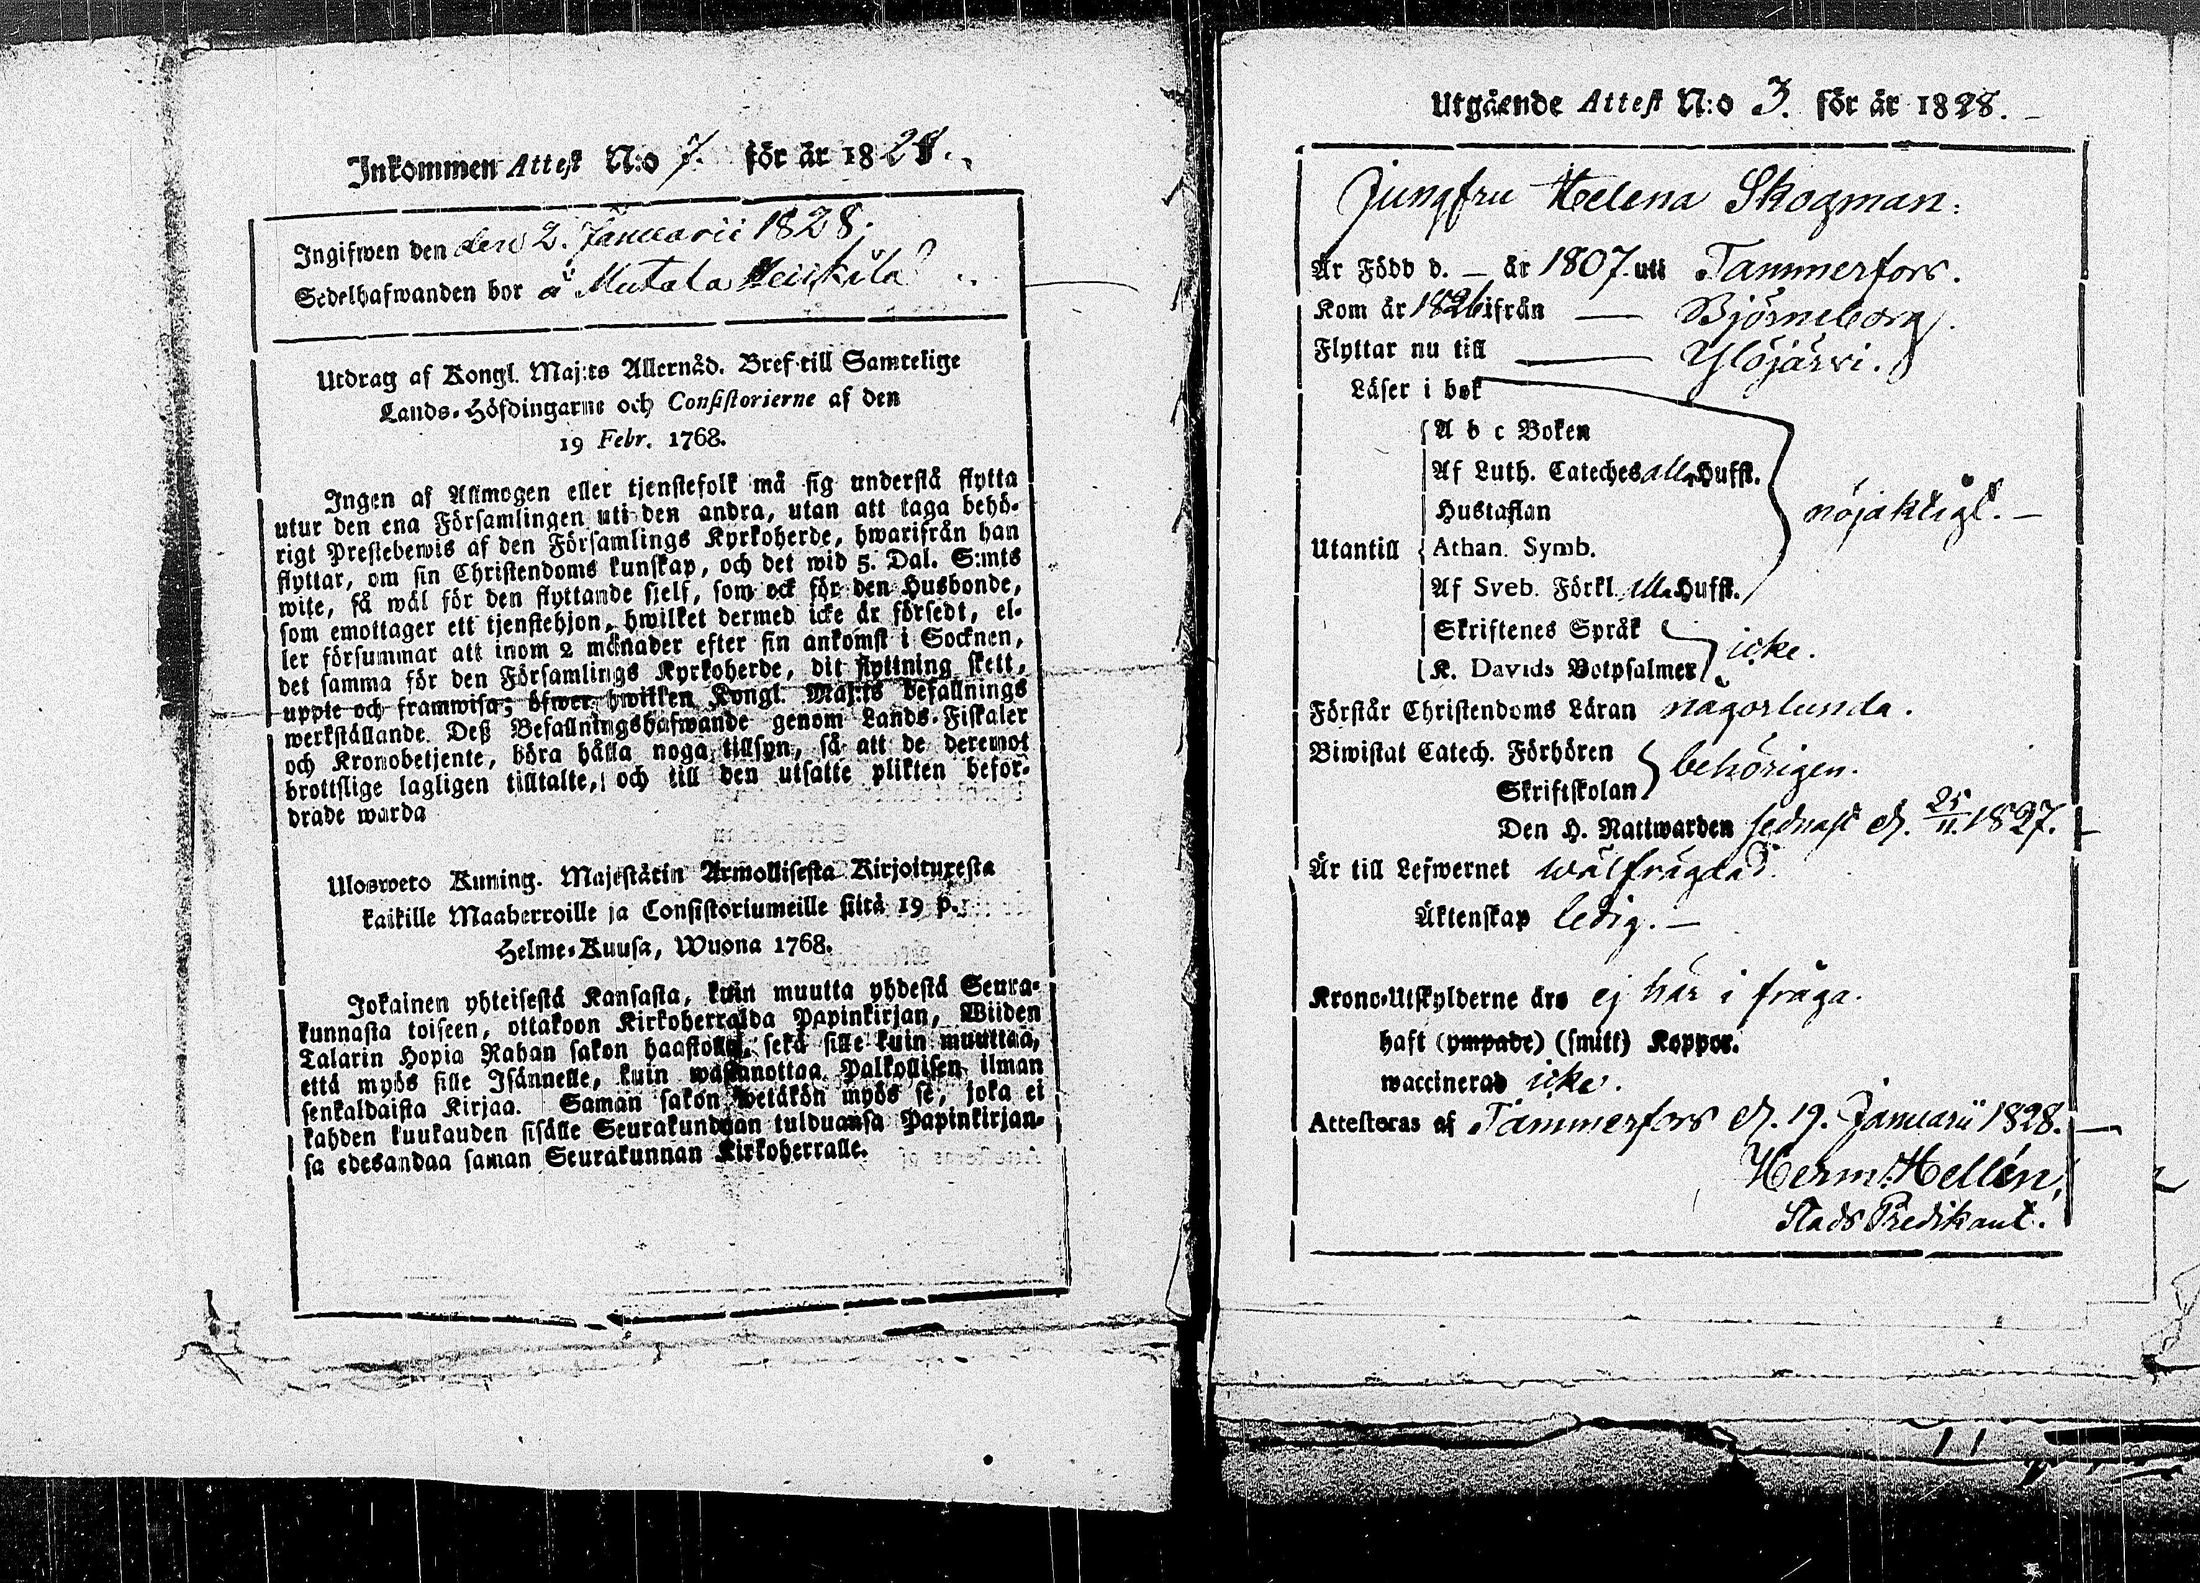 Inkommen Attest N:o 7. för år 1828.
Ingifwen den den 2. Januarii 1828.
Sedelhafwanden bor å Mutala Heikkilä
Utdrag af Kongl. Maj:ts Allernåd. Bref till Samtelige
Lands-Höfdingarne och Consistorierne af den
19 Febr. 1768.
Ingen af Allmogen eller tjenstefolk må sig understå flytta
utur den ena Församlingen uti den andra, utan att taga behö-
rigt Prestebewis af den Församlings Kyrkoherde, hwarifrån han
flyttar, om sin Christendoms kunskap, och det wid 5. Dal. S:mts
wite, så wäl för den flyttande sjelf, som ock för den Husbonde,
som emottager ett tjenstehjon, hwilket dermed icke är försedt, el-
ler försummar att inom 2 månader efter sin ankomst i Socknen,
det samma för den Församlings Kyrkoherde, dit flyttning skett,
uppte och framwisa; öfwer hwilken Kongl. Maj:ts befallnings
werkställande Deß Befallningshafwande genom Lands-Fiskaler
och Kronobetjente, böra hålla noga tillsyn, så att de deremot
brottslige lagligen tilltalte, och till den utsatte plikten beför-
drade warda
Ulosweto Kuning. Majestätin Armollisesta Kirjoituxesta
kaikille Maaherroille ja Consistoriumeille siitä 19 p.
Helme-Kuusa, Wuona 1768.
Jokainen yhteisestä Kansasta, kuin muutta yhdestä Seura-
kunnasta toiseen, ottakoon Kirkoherralda Papinkirjan, Wiiden
Talarin Hopia Rahan sakon haastolla, sekä sille kuin muuttaa,
että myös sille Isännelle, kuin wastanottaa Palkollisen ilman
senkaldaista Kirjaa. Saman sakon wetäkön myös se, joka ei
kahden kuukauden sisälle Seurakundaan tulduansa Papinkirjan-
sa edesandaa saman Seurakunnan Kirkoherralle.
Utgående Attest N:o 3. för år 1828.
Jungfru Helena Skogman.
Är Född d. — år 1807. uti Tammerfors.
Kom år 1826 ifrån — Björneborg.
Flyttar nu till — Ylöjärvi.
Läser i bok
A b c Boken
Af Luth. Cateches alla Hufst.
Hustaflan
nöjaktigt. —
Utantill Athan. Symb.
Af Sveb. Förkl. alla Hufst.
Skriftenes Språk
icke.
K. Davids Botpsalmer
Förstår Christendoms Läran någorlunda.
Biwistat Catech. Förhören
behörigen.
Skriftskolan
Den H. Nattwarden sednast d. 25/11. 1827.
Är till Lefwernet wälfrägdad.
Äktenskap ledig. —
Krono-Utskylderne äro ej här i fråga.
haft (ympade) (smitt) Koppor.
waccinerad icke.
Attesteras af Tammerfors d. 19. Januarii 1828.
Herm. Hellén,
Stads Predikant.